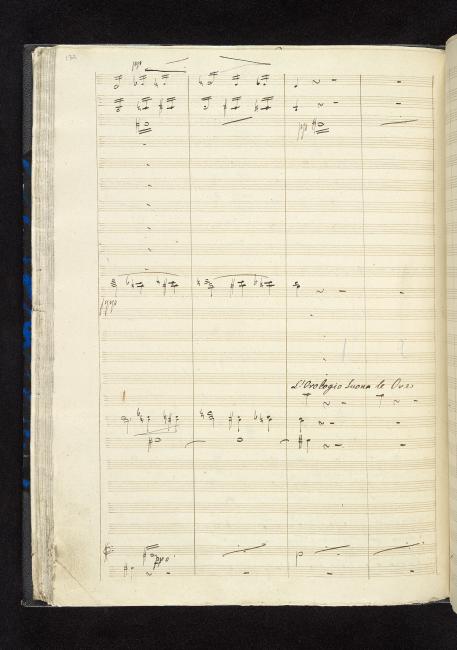 132
ppp
ppp
ppp
L'Orologio Suona le Ore
ppo.